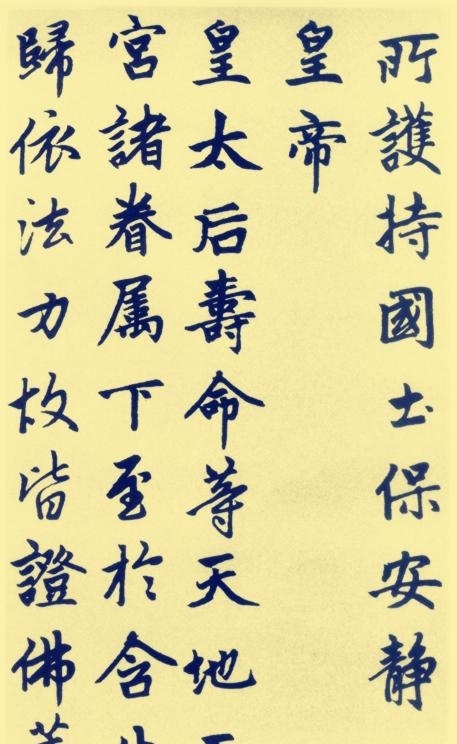 所護持國土保安静
皇帝
皇太后壽命等天地
宮諸眷属下至於含
歸依法力故皆證佛